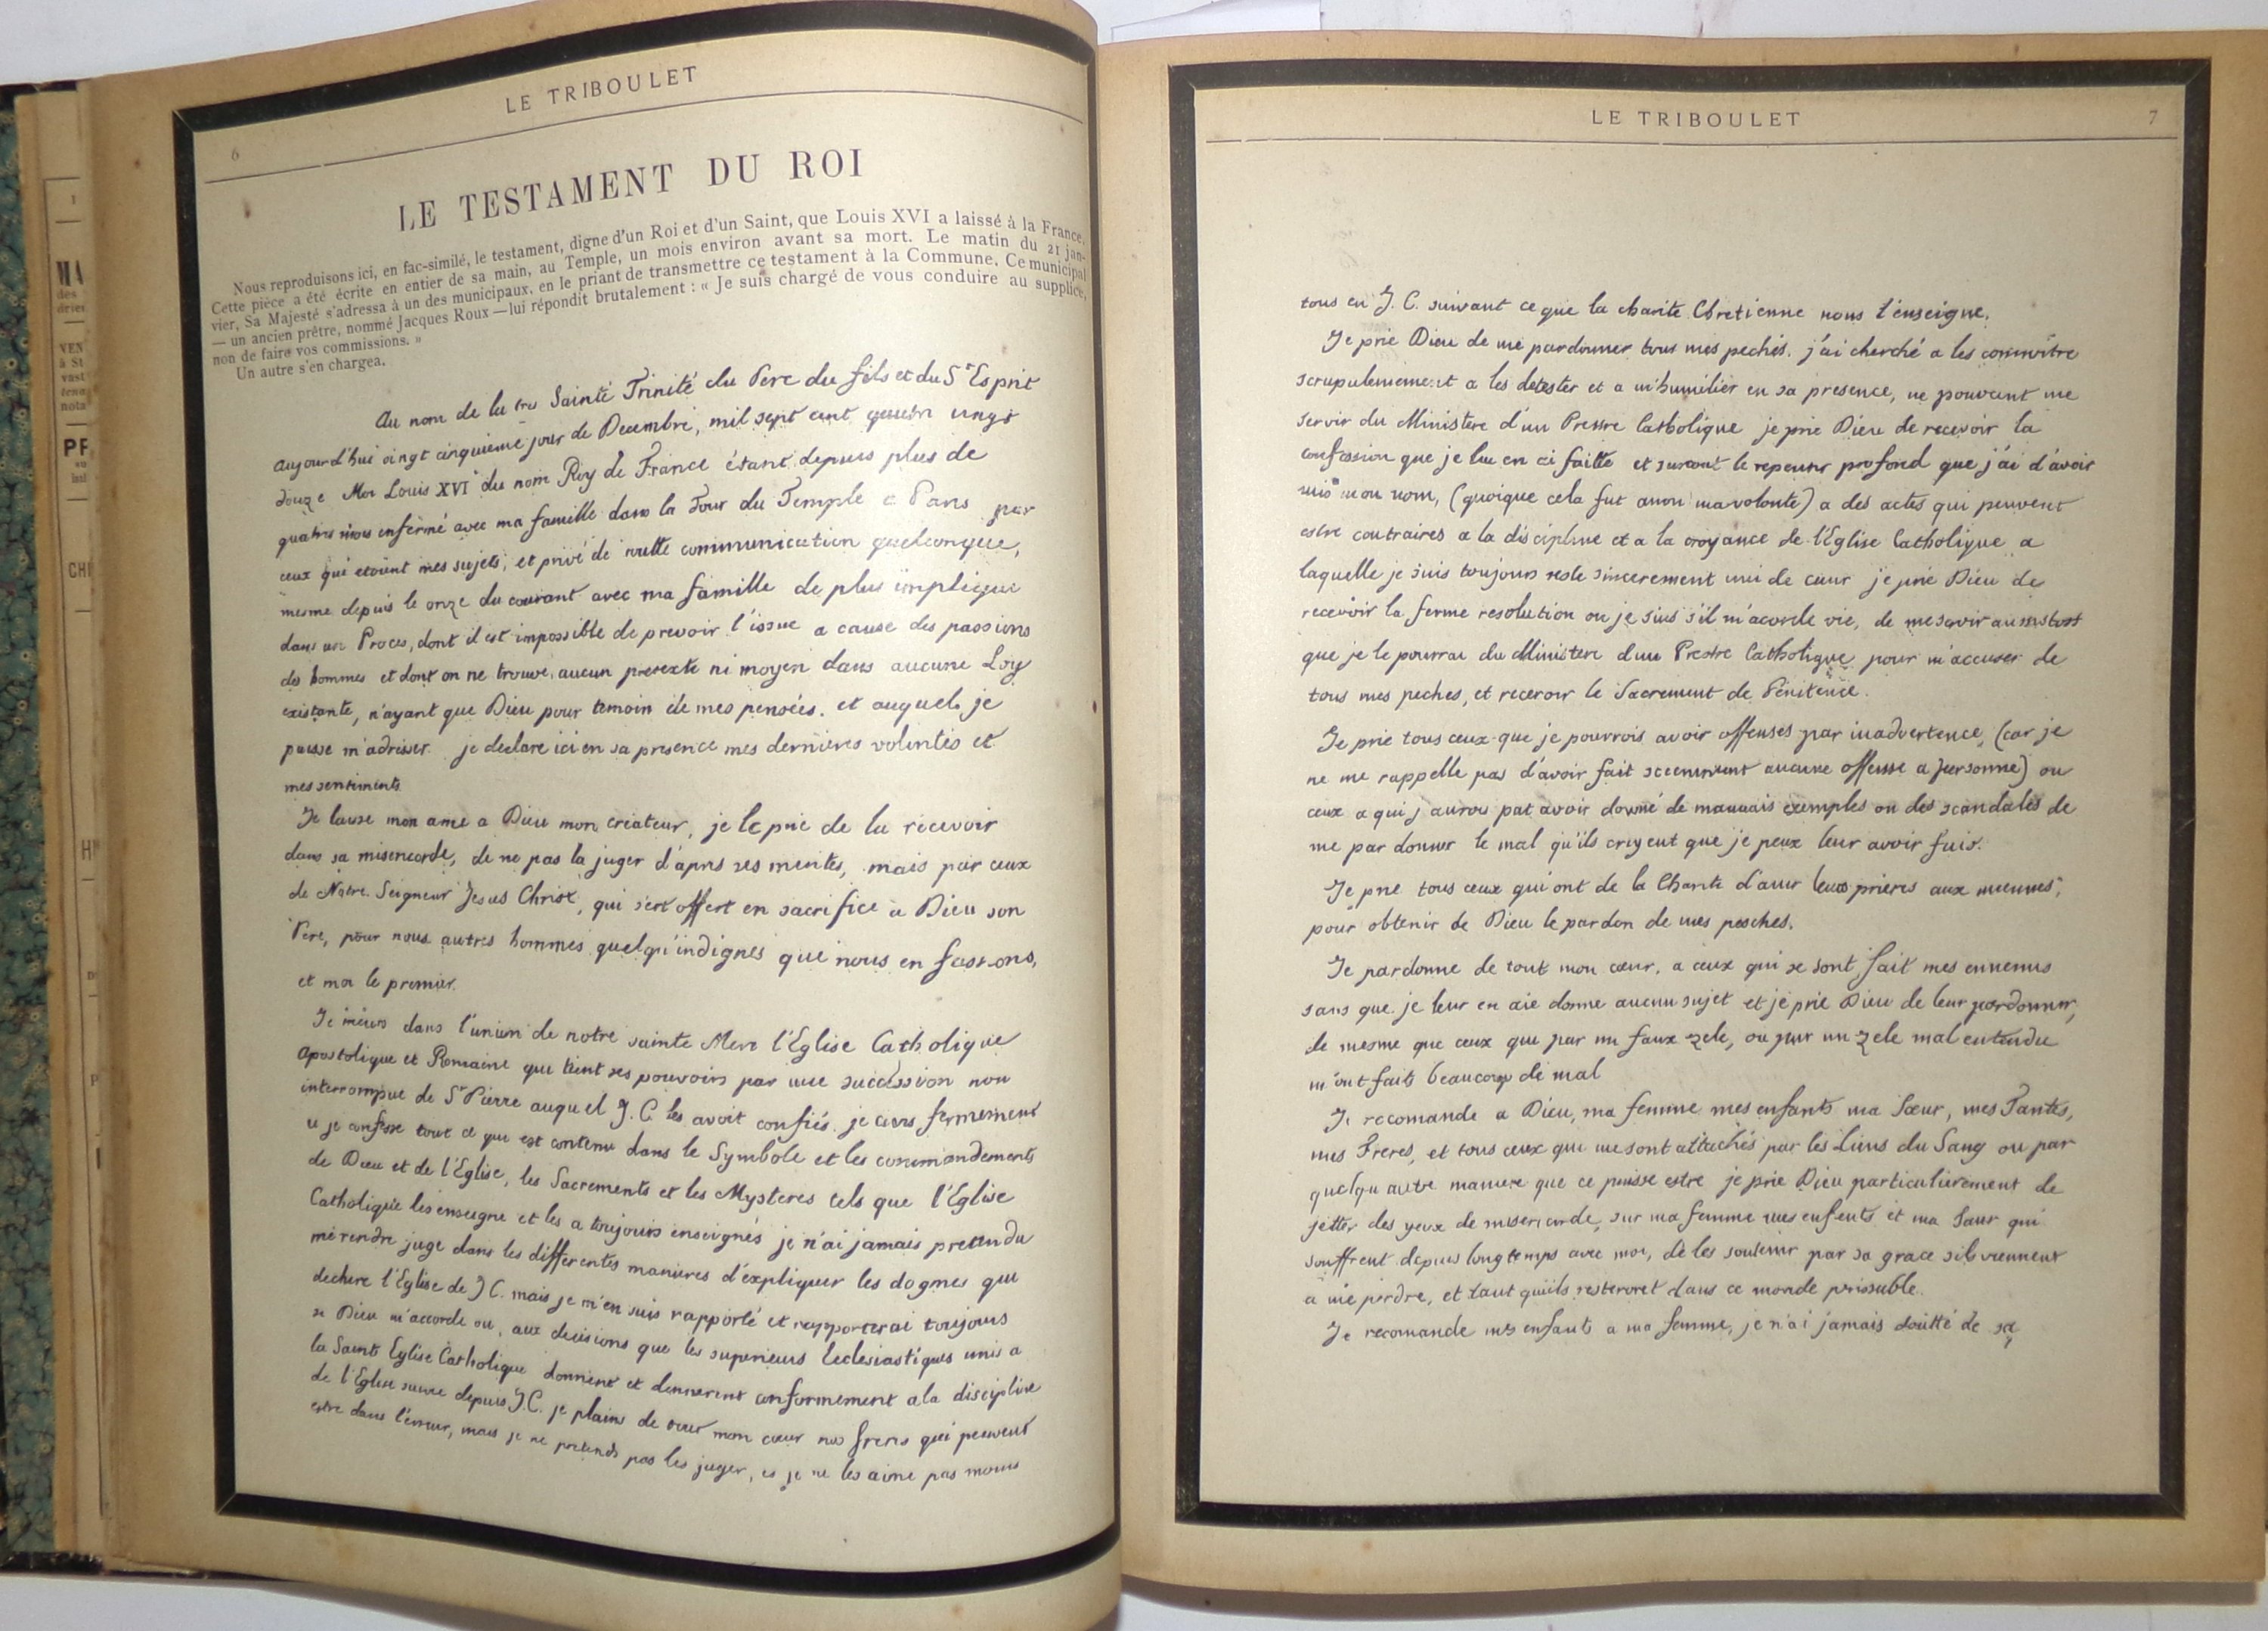 LE TRIBOULET
6
LE TESTAMENT DU ROI
Nous reproduisons ici, en fac-similé, le testament, digne d'un Roi et d'un Saint, que Louis XVI a laissé à la France.
Cette pièce a été écrite en entier de sa main, au Temple, un mois environ avant sa mort. Le matin du 21 jan-
vier, Sa Majesté s'adressa à un des municipaux, en le priant de transmettre ce testament à la Commune. Ce municipal
— un ancien prêtre, nommé Jacques Roux — lui répondit brutalement : « Je suis chargé de vous conduire au supplice,
non de faire vos commissions. »
Un autre s'en chargea.
Au nom de la tres Sainte Trinité du Pere du fils et du St Esprit
aujourd'hui vingt cinquieme jour de Decembre, mil sept cent quatre vingt
douze Moi Louis XVI du nom Roy de France étant depuis plus de
quatres mois enfermé avec ma famille dans la Tour du Temple a Paris par
ceux qui etoient mes sujets, et privé de toutte communication quelconque,
mesme depuis le onze du courant avec ma famille de plus impliqué
dans un Proces, dont il est impossible de prevoir l'issue a cause des passions
des hommes et dont on ne trouve aucun pretexte ni moyen dans aucune Loy
existante, n'ayant que Dieu pour temoin de mes pensées. et auquel je
puisse m'adresser. je declare ici en sa presence mes dernieres volontés et
mes sentiments
Je laisse mon ame a Dieu mon createur, je le prie de la recevoir
dans sa misericorde, de ne pas la juger d'apres ses merites, mais par ceux
de Notre Seigneur Jesus Christ, qui s'est offert en sacrifice a Dieu son
Pere, pour nous autres hommes quelqu'indignes que nous en fussions,
et moi le premier.
Je meurs dans l'union de notre sainte Mere l'Eglise Catholique
Apostolique et Romaine qui tient ses pouvoirs par une succession non
interrompue de St Pierre auquel J.C. les avoit confiés. je crois fermement
et je confesse tout ce qui est contenu dans le Symbole et les commandements
de Dieu et de l'Eglise, les Sacrements et les Mysteres tels que l'Eglise
Catholique les enseigne et les a toujours enseignés je n'ai jamais pretendu
me rendre juge dans les differentes manieres d'expliquer les dogmes qui
dechire l'Eglise de J.C. mais je m'en suis rapporté et rapporterai toujours
si Dieu m'accorde vie, aux decisions que les superieurs Ecclesiastiques unis a
la Sainte Eglise Catholique donnent et donneront conformement a la discipline
de l'Eglise suivie depuis J.C. je plains de tout mon cœur nos freres qui peuvent
estre dans l'erreur, mais je ne pretends pas les juger, et je ne les aime pas moins
LE TRIBOULET
7
tous en J.C. suivant ce que la charité Chretienne nous l'enseigne.
Je prie Dieu de me pardonner tous mes pechés. j'ai cherché a les connoitre
scrupulesement a les detester et a m'humilier en sa presence, ne pouvant me
servir du Ministere d'un Prestre Catholique je prie Dieu de recevoir la
confession que je lui en ai faitte et surtout le repentir profond que j'ai d'avoir
mis mon nom, (quoique cela fut contre ma volonte) a des actes qui peuvent
estre contraires a la discipline et a la croyance de l'Eglise Catholique a
laquelle je suis toujours resté sincerement uni de cœur je prie Dieu de
recevoir la ferme resolution ou je suis s'il m'acorde vie, de me servir aussistost
que je le pourrai du Ministere d'un Prestre Catholique, pour m'accuser de
tous mes peches, et recevoir le Sacrement de Penitence.
Je prie tous ceux que je pourrois avoir offensés par inadvertence, (car je
ne me rappelle pas d'avoir fait sciemment aucune offense a personne) ou
ceux a qui j'aurois put avoir donné de mauvais exemples ou des scandales de
me pardonner le mal qu'ils croyent que je peux leur avoir fait.
Je prie tous ceux qui ont de la Charité d'unir leurs prieres aux miennes,
pour obtenir de Dieu le pardon de mes peschés.
Je pardonne de tout mon cœur, a ceux qui se sont fait mes ennemis
sans que je leur en aie donné aucun sujet et je prie Dieu de leur pardonner,
de mesme que ceux qui par un faux zele, ou par un zele mal entendu
m'ont faits beaucoup de mal
Je recomande a Dieu, ma femme mes enfants ma Sœur, mes Tantes,
mes Freres, et tous ceux qui me sont attachés par les Liens du Sang ou par
quelqu autre maniere que ce puisse estre je prie Dieu particulierement de
jetter des yeux de misericorde, sur ma femme mes enfents et ma Sœur qui
souffrent depuis longtemps avec moi, de les soutenir par sa grace s'ils viennent
a me perdre, et tant quils resteront dans ce monde perissable.
Je recomande mes enfants a ma femme, je n'ai jamais doutté de sa